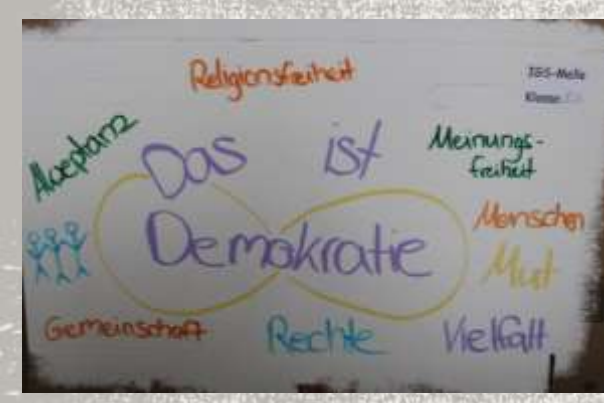 Religionsfreiheit
IGS-Melle
Klasse:
Akzeptanz
Das ist
Demokratie
Meinungs-
freiheit
Menschen
Mut
Gemeinschaft
Rechte
Vielfalt